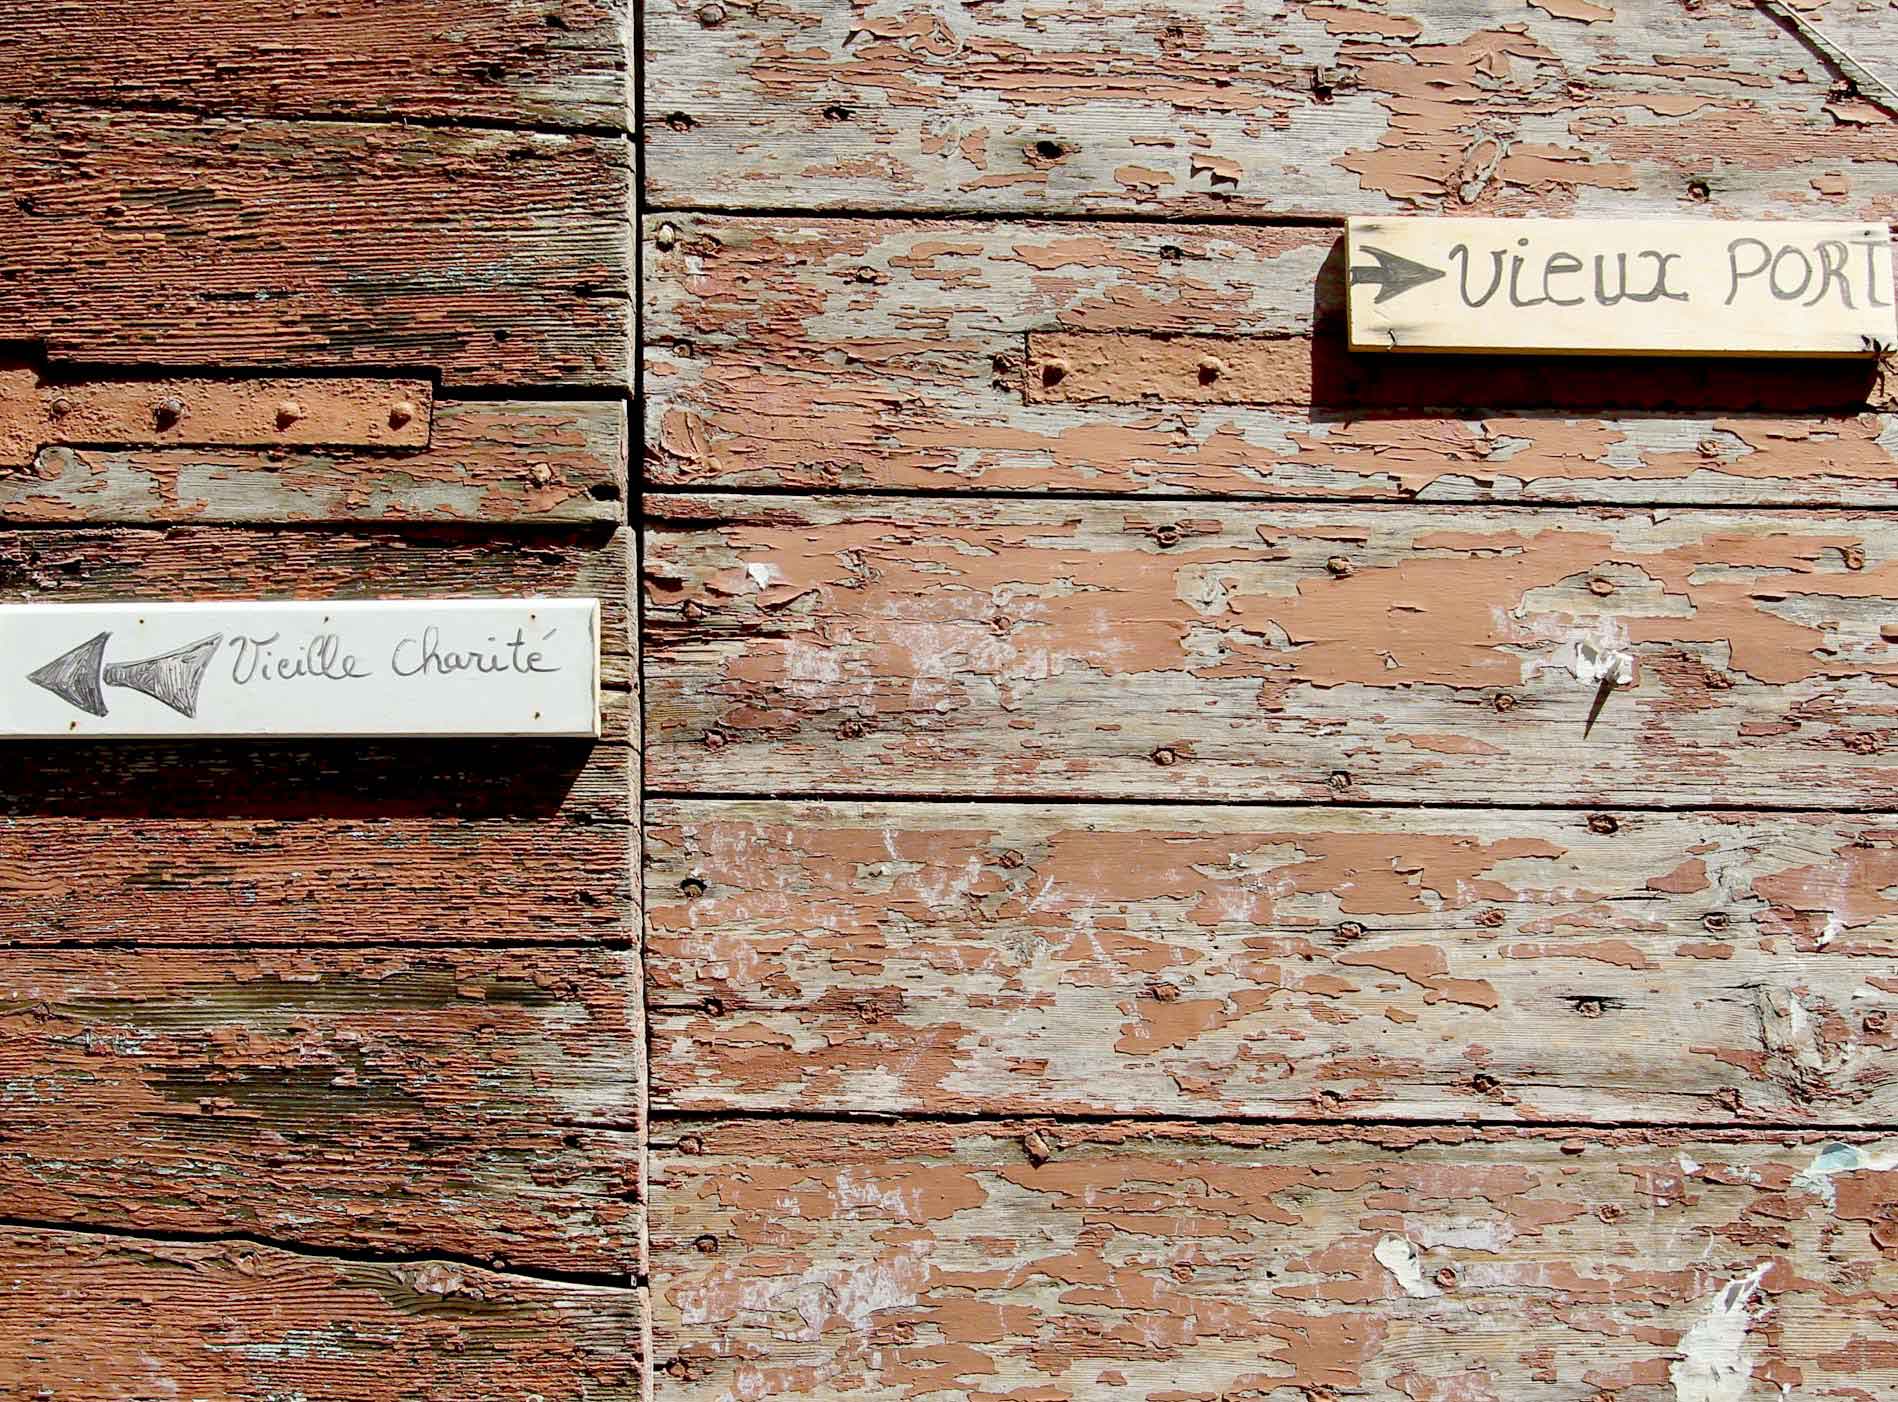 Vieux PORT
Vieille Charité